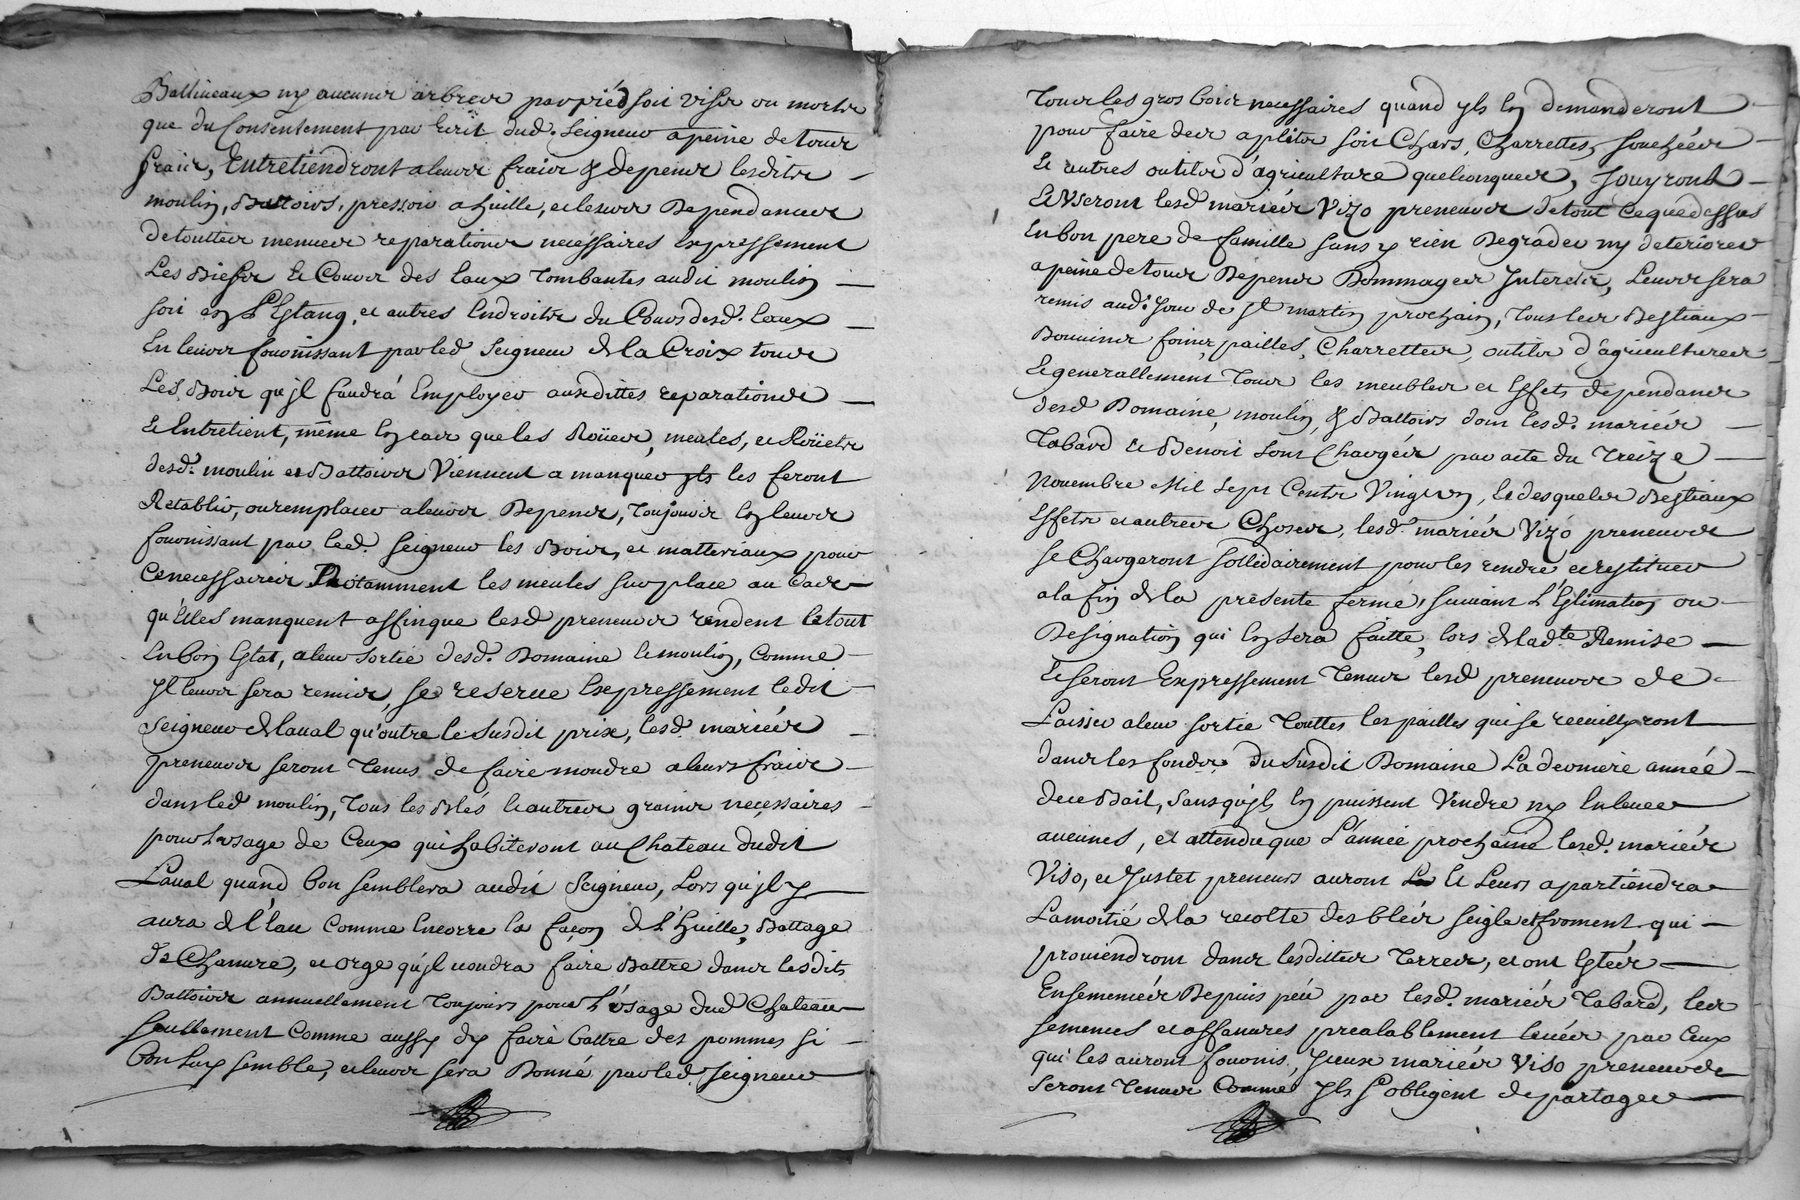 Balliveaux ny aucuns arbres par pied soit vifs ou morts
que du Consentement par Ecrit dud. Seigneur a peine de tous
fraix, Entretiendront a leurs fraix & depens lesdits
moulin, Battoirs, pressoir a huille, et leurs Dependances
de touttes menues reparations necessaires Expressement
Les Biefs et Cours des Eaux Tombantes audit moulin
soit en L'Estang, et autres Endroits du Cours desd. Eaux
En leurs fournissant par led. Seigneur de la Croix tous
Les Bois qu'jl faudrá Employer auxdittes reparations
Et Entretient, même En cas que les Roües, meules, et Roüets
desd. moulin et Battoirs Viennent a manquer jls les feront
Retablir, ou remplacer a leurs Depens, Toujours En leurs
fournissant par led. Seigneur les Bois, et matteriaux pour
Ce necessaires Notamment les meules sur place au Cas
qu'Elles manquent affinque lesd. preneurs rendent le tout
En bon Estat, a leur sortie desd. Domaine et moulin, Comme
Jl leurs sera remis, se reserve Expressement ledit
Seigneur de laval qu'outre le susdit prix, lesd. mariés
preneurs seront Tenus de faire moudre a leurs fraix
dans led. moulin, Tous les Blés et autres grains neçessaires
pour L'usage de Ceux qui habiteront au Chateau dudit
Laval quand bon semblera audit Seigneur, Lors qu'jl y
aura de l'Eau Comme Encorre la façon de L'huille, Battage
de Chanvre, et orge qu'jl voudra faire Battre dans lesdits
Battoirs annuellement Toujours pour L'usage dud. Chateau
seullement Comme aussy d'y faire battre des pommes si
bon Luy semble, et leurs sera Donné par led. Seigneur
Tous les gros bois necessaires quand jls En demanderont
pour faire des aplits soit Chars, Charrettes,
Et autres outils d'agriculture quelconques, Jouyront
Et Useront lesd. mariés Vizo preneurs de tout Ce que dessus
En bon pere de famille sans y rien Degrader ny deteriorer
a peine de tous Depens Dommages Interets, Leurs sera
remis aud. Jour de St martin prochain, Tous les Bestiaux
Bouvines foins, pailles, Charrettes, outils d'agricultures
Et generallement Tous les meubles et Effets dependans
desd. Domaine, moulin, & Battoirs dont lesd. mariés
Tabard et Benoit sont Chargés par acte du Treize
Novembre Mil Sept Cents Vingt un, Et desquels Bestiaux
Effets et autres Choses, lesd. mariés Vizo preneurs
se Chargeront sollidairement pour les rendre et restituer
a la fin de la presente ferme, suivant L'Estimation ou
Designation qui En sera faitte, lors de lad.te Remise
Et seront Expressement Tenus lesd. preneurs de
Laisser a leur sortie Touttes les pailles qui se receuillyront
dans les fonds du susdit Domaine La derniere année
de ce Bail, sans qu'jls En puissent Vendre ny Enlever
aucunes, et attendu que L'année prochaine lesd. mariés
Viso, et Justet preneurs auront Et Leurs apartiendra
La moitié de la recolte des bleds seigle et froment qui
proviendront dans lesdittes Terres, et ont Estés
Ensemencés Depuis peu par lesd. mariés Tabard, les
semences et affanures prealablement levées par Ceux
qui les auront fournis, Jceux mariés Viso preneurs
seront Tenus Comme Jls s'obligent de partager